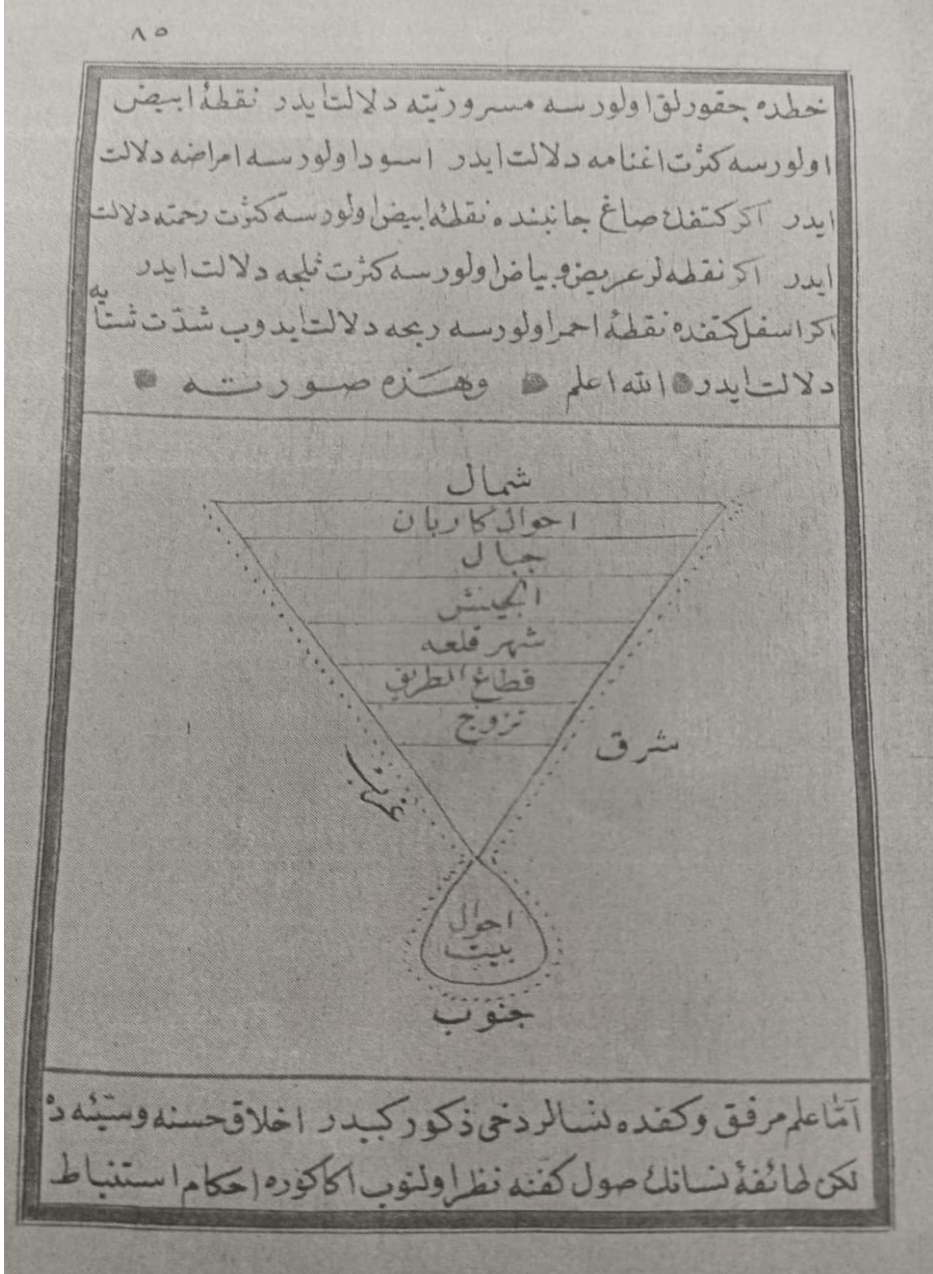 ٨٥
خطده چقورلق اولورسه مسرورتیته دلالت ایدر نقطهٔ ابیض
اولورسه کثرت اغنامه دلالت ایدر اسود اولورسه امراضه دلالت
ایدر اکر کتفك صاغ جانبنده نقطهٔ ابیض اولورسه کثرت رحمته دلالت
ایدر اکر نقطه لر عریض و بیاض اولورسه کثرت ثلجه دلالت ایدر
اکر اسفل کتفده نقطهٔ احمر اولورسه ریحه دلالت ایدوب شدّت شتایه
دلالت ایدر الله اعلم وهذه صورته
شمال
احوال کاربان
جبال
الجیش
شهر قلعه
قطاع الطریق
تزوج
شرق
غرب
احوال
بیت
جنوب
امّا علم مرفق وکفده نسالر دخی ذکور کبیدر اخلاق حسنه وسیّئه ده
لکن طائفهٔ نسانك صول کفنه نظر اولنوب اکا کوره احکام استنباط